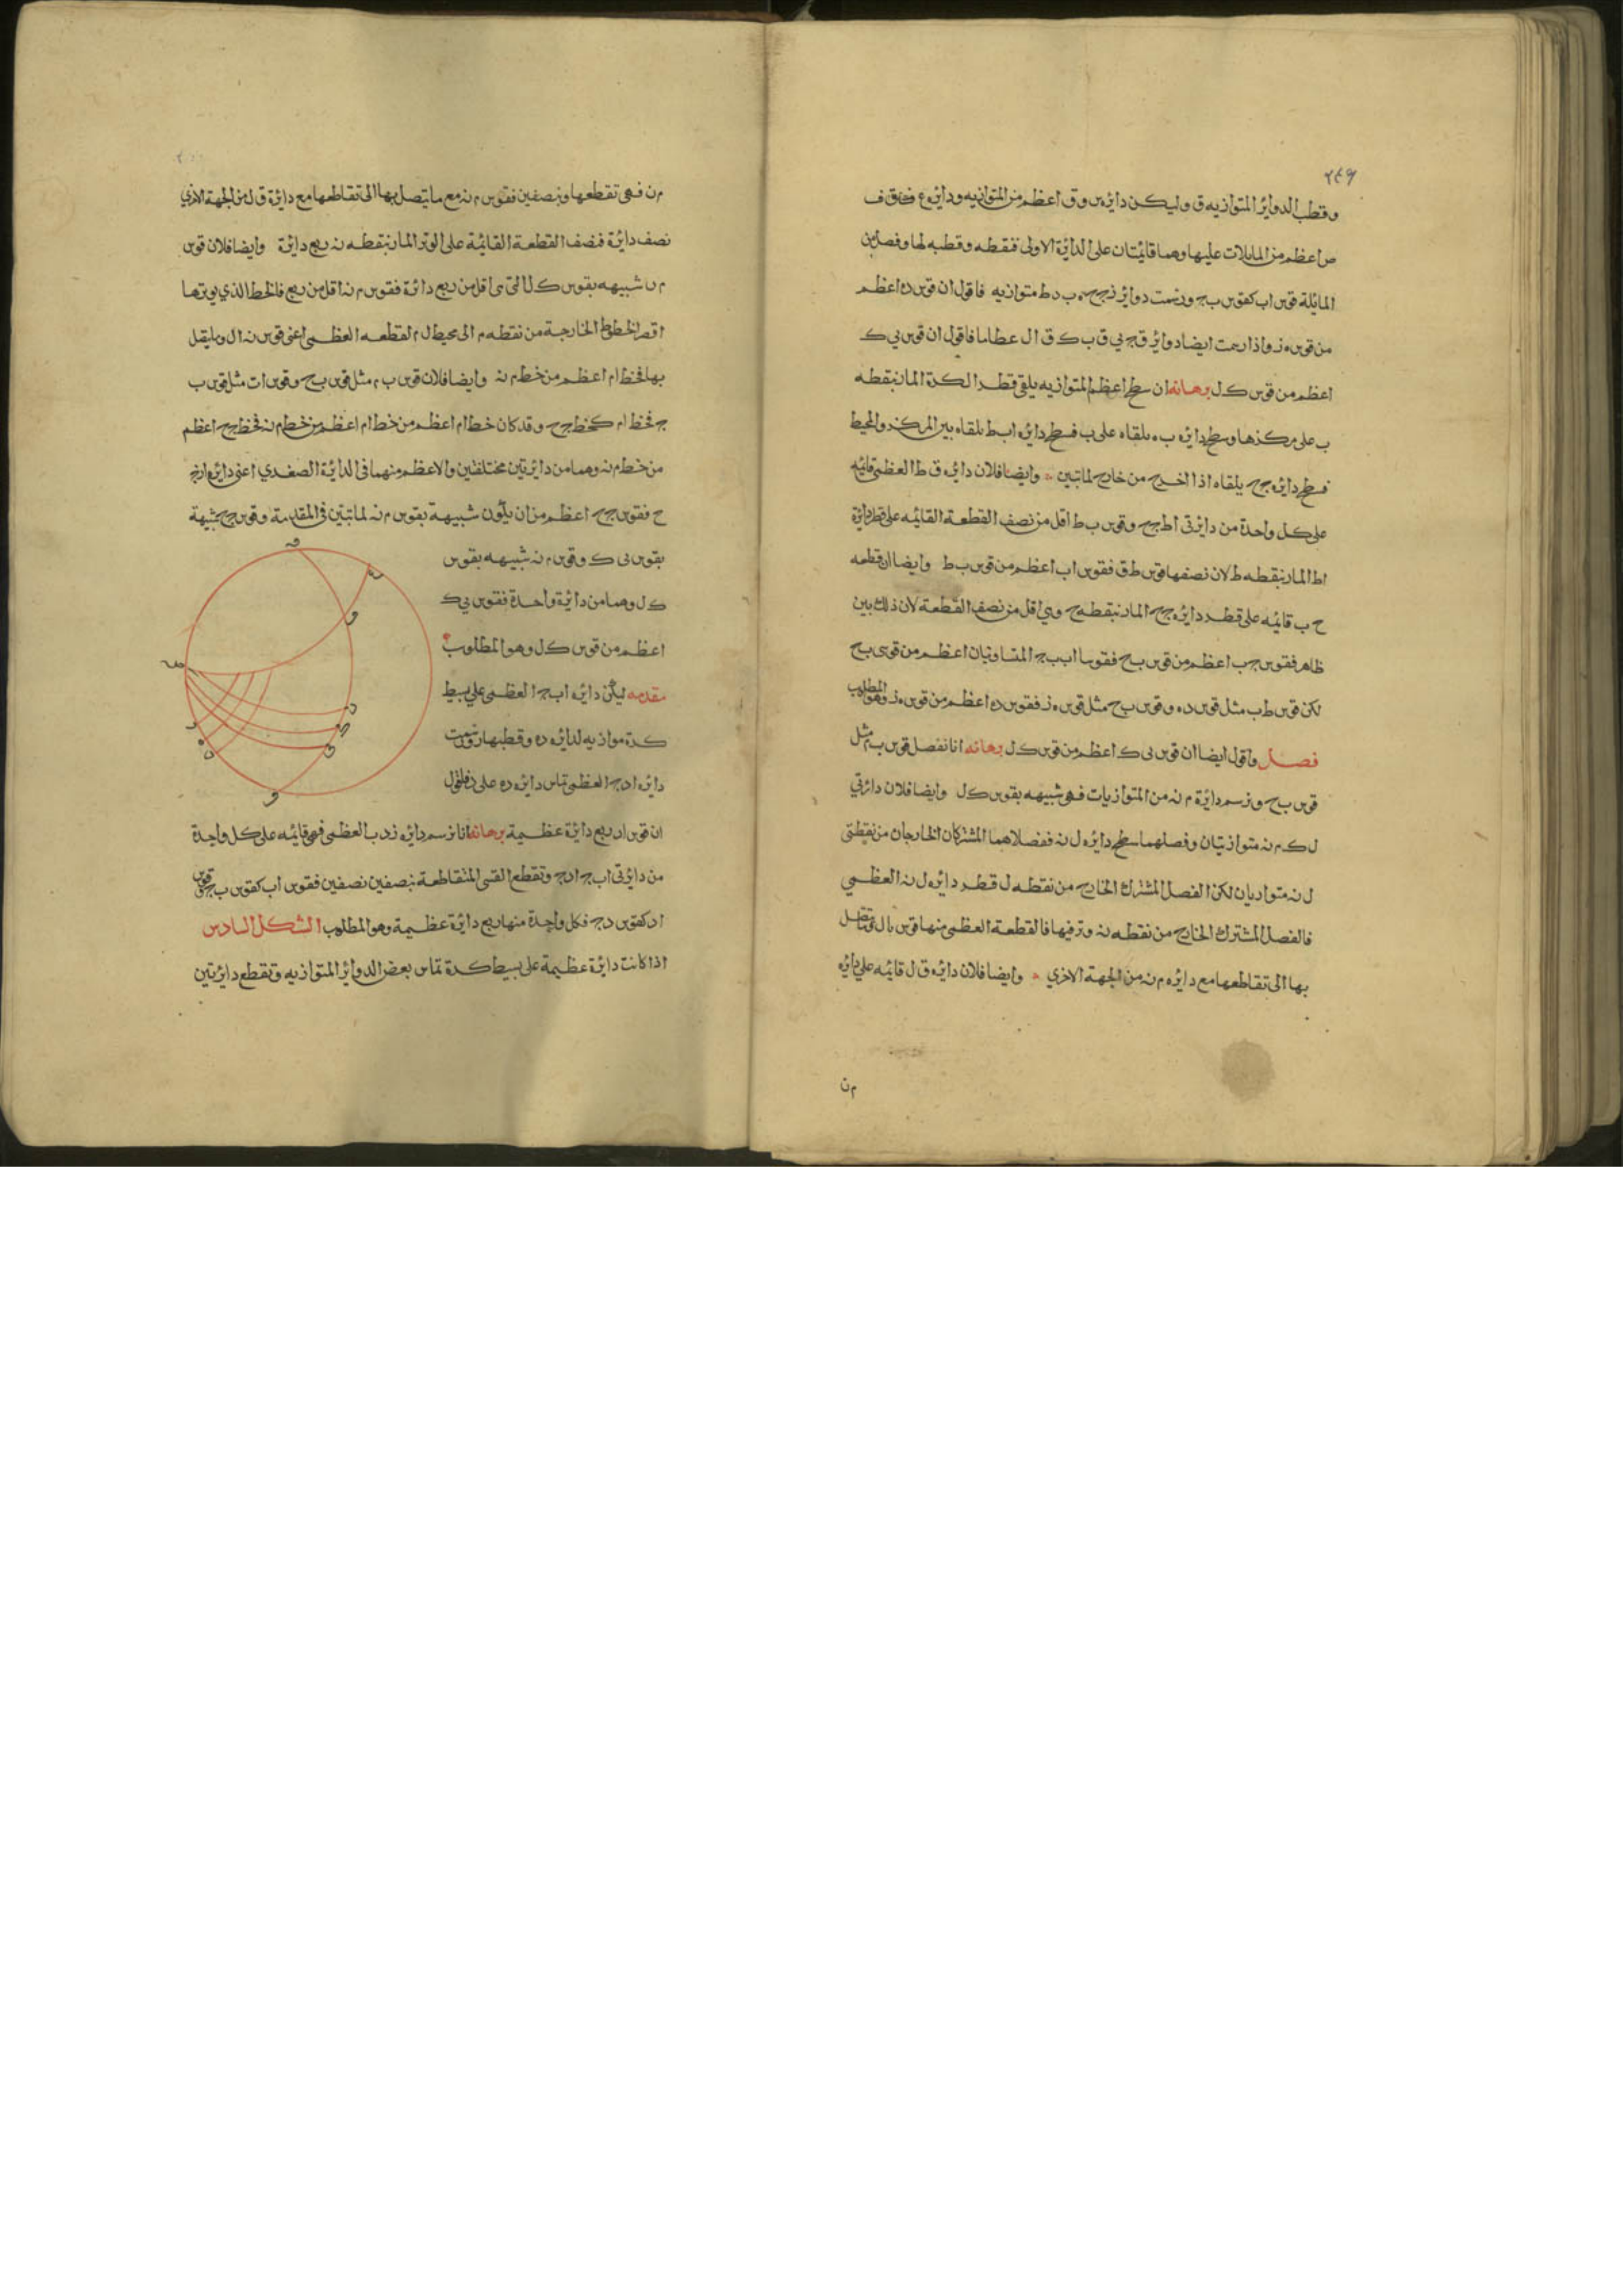 ٢٤٩
وقطب الدواير المتوازيه ق وليكن دايره ق اعظم من المتوازيه ودايره ع
ص اعظم من المايلات عليها وهما قايمتان على الدايرة الاولى فنقطه وقطبه لها وفصل من
المائلة قوس اب كقوس ب ج ورسمت دواير ب د ط متوازيه فاقول ان قوس ده اعظم
من قوس ه ز واذا رسمت ايضا دواير ق ج ق ب ك ق ال عظاما فاقول ان قوس ي ك
اعظم من قوس ك ل برهانه ان سطح اعظم المتوازيه يلقى قطر الكرة المار بنقطه
ب على مركزها وسطح دايره ب ه يلقاه على ب فسطح دايره اب ط يلقاه بين المركز والمحيط
فسطح دايره ج ح يلقاه اذا اخرج من خارج لما تبين وايضا فلان دايره ق ط العظمى قايمه
على كل واحدة من دايرتى اط ج ح وقوس ب ط اقل من نصف القطعة القايمه على قطر دايرة
اط المار بنقطه ط لان نصفها قوس ط ق فقوس اب اعظم من قوس ب ط وايضا ان قطعه
ح ب قايمه على قطر دايره ج ح المار بنقطه ح وهي اقل من نصف القطعة لان ذلك بين
ظاهر فقوس ج ب اعظم من قوس ب ح فقوسا اب ب ج المتساويتان اعظم من قوسى ب ح
لكن قوس ط ب مثل قوس د ه وقوس ب ح مثل قوس ه ز فقوس ده اعظم من قوس ه ز وهو المطلوب
فصل واقول ايضا ان قوس ى ك اعظم من قوس ك ل برهانه انا نفصل قوس ب م مثل
قوس ب ح ونرسم دايرة م نه من المتوازيات فهى شبيهه بقوس ك ل وايضا فلان دايرتي
ل ك م نه متوازيتان وفصلهما سطح دايره ل نه ففصلاهما المشتركان الخارجان من نقطتى
ل نه متوازيان لكن الفصل المشترك الخارج من نقطه ل قطر دايره ل نه العظمي
فالفصل المشترك الخارج من نقطه نه وتر فيها فالقطعة العظمى منها قوس نه ال مع ما يتصل
بها الى تقاطعها مع دايره م نه من الجهة الاخري وايضا فلان دايره ق ل قايمه علي دايره
م ن
م ن فهى تقطعها وبنصفين فقوس م نه مع ما يتصل بها الى تقاطعها مع دايرة ق ل من الجهة الاخري
نصف دايرة فنصف القطعة القايمة على الوتر المار بنقطه نه ربع دايرة وايضا فلان قوس
م ن شبيهه بقوس ك ل التى هى اقل من ربع دائرة فقوس م نه اقل من ربع فالخط الذي يوترها
اقصر الخطوط الخارجة من نقطه م الى محيط ل م لقطعه العظمى اعنى قوس نه ال وما يتصل
بها فخط ام اعظم من خط م نه وايضا فلان قوس ب م مثل قوس ب ح وقوس اب مثل قوس ب
ج فخط ام كخط ج ح وقد كان خط ام اعظم من خط م نه فخط ج ح اعظم
من خط م نه وهما من دايرتين مختلفتين والاعظم منهما فى الدايرة الصغري اعنى دايره
ح فقوس ج ح اعظم من ان يكون شبيهة بقوس م نه لما تبين فى المقدمة وقوس ج ح شبيهة
بقوس ى ك وقوس م نه شبيهه بقوس
ك ل وهما من دايرة واحدة فقوس ي ك
اعظم من قوس ك ل وهو المطلوب
مقدمه ليكن دايره اب ج العظمى على بسيط
كرة موازيه لدايره ده وقطبها ز ورسمت
دايره اد ج العظمى تماس دايره ده على د فاقول
ان قوس اد ربع دايرة عظيمة برهانه انا نرسم دايره ز د ب العظمى فهى قايمه على كل واحدة
من دايرتى اب ج اد ج وتقطع القسى المتقاطعة بنصفين نصفين فقوس اب كقوس ب ج وقوس
اد كقوس د ج فكل واحدة منها ربع دايرة عظيمة وهو المطلوب الشكل السادس
اذا كانت دايرة عظيمة على بسيط كرة تماس بعض الدواير المتوازيه وتقطع دايرتين